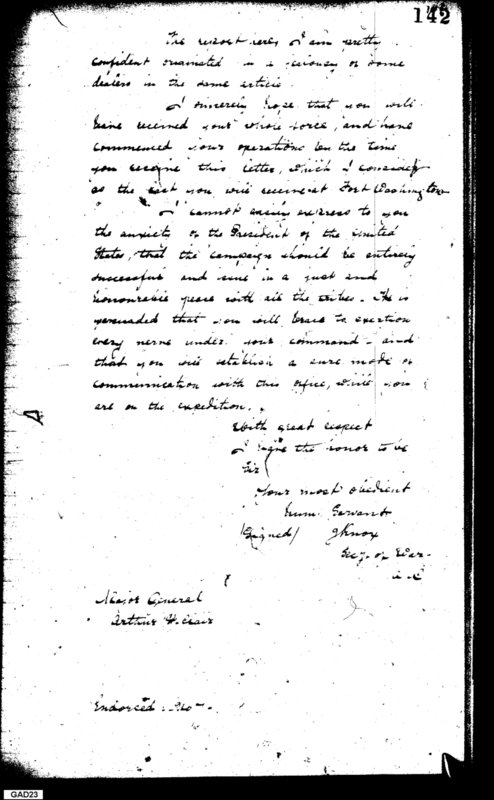 142
The report here, I am pretty
confident originated in a jealousy of some
dealers in the same article
I sincerely hope that you will
have received your whole force, and have
commenced your operations by the time
you receive this letter, which I consider
as the last you will receive at Fort Washington
I cannot easily express to you
the anxiety of the President of the United
States, that the campaign should be entirely
successful and end in a just and
honourable peace with all the tribes. He is
persuaded that you will brace to exertion
every nerve under your command - and
that you will establish a sure mode of
communication with this office, while you
are on the expedition.
With great respect
I have the honor to be
Sir
Your most obedient
Hum. Servant
(Signed) J Knox
Secy. of War.
Major General
Arthur St. Clair
Endorsed
GAD23